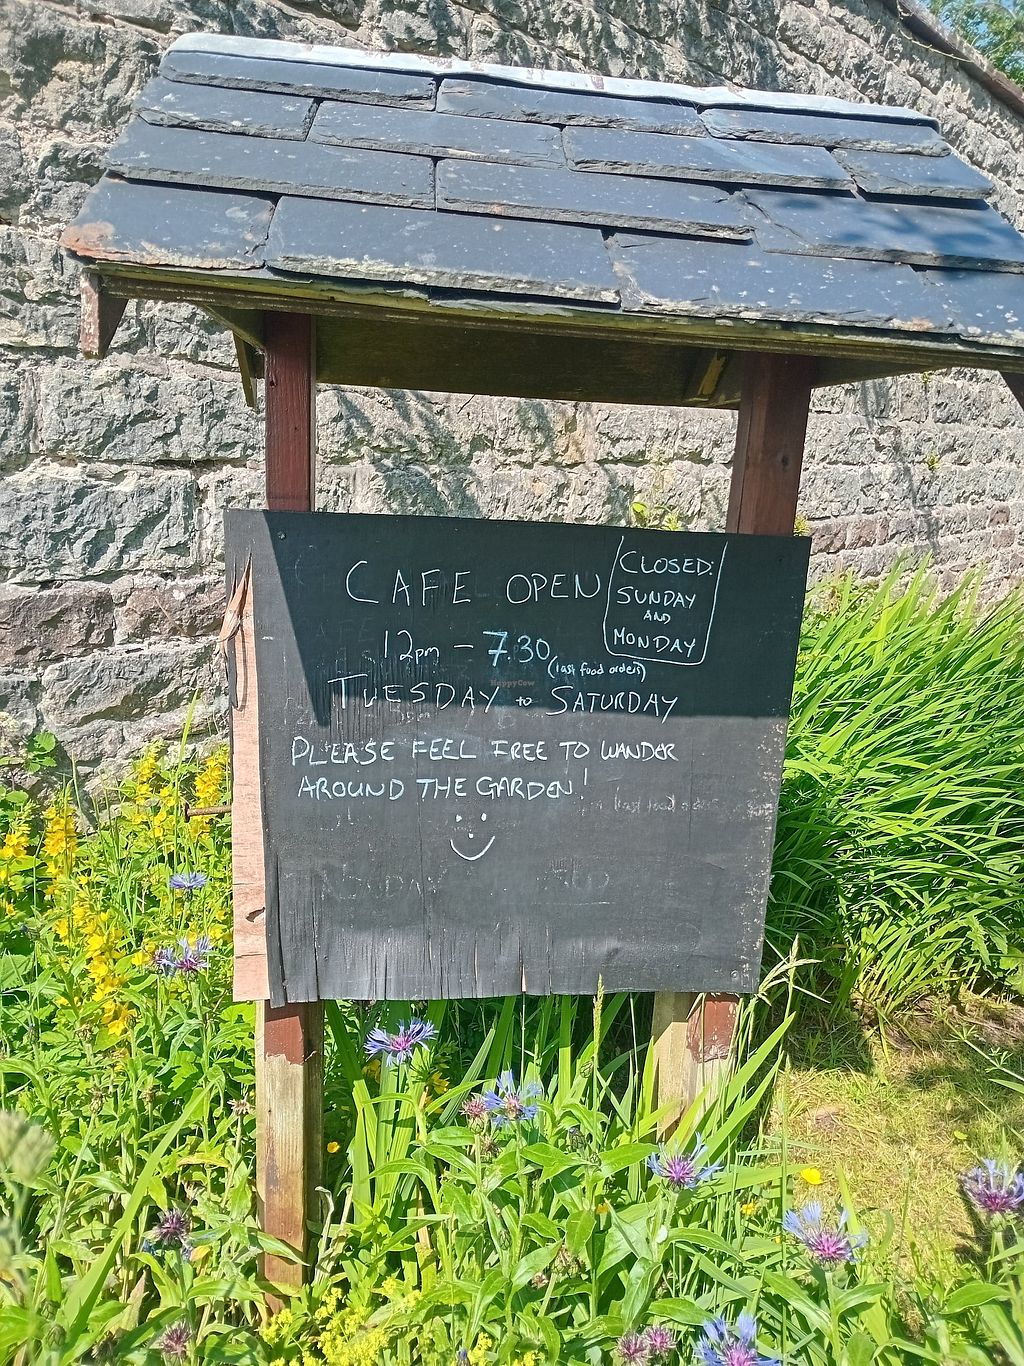 CAFE OPEN
12pm - 7.30
(last food orders)
TUESDAY to SATURDAY
CLOSED:
SUNDAY
AND
MONDAY
PLEASE FEEL FREE TO WANDER
AROUND THE GARDEN!
last food orders
HappyCow